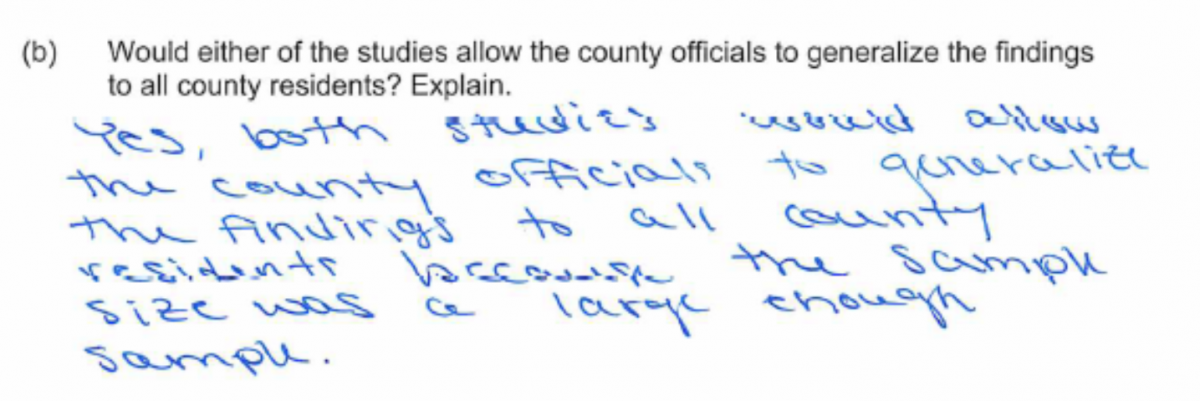 (b) Would either of the studies allow the county officials to generalize the findings
to all county residents? Explain.
Yes, both studies would allow
the county officials to generalize
the findings to all county
residents because the sample
size was a large enough
sample.